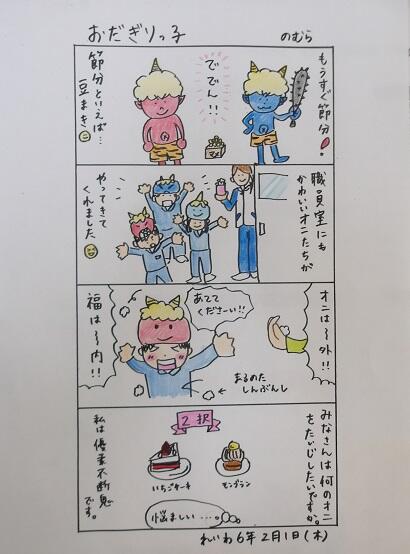 おだぎりっ子
のむら
もうすぐ節分!
ででん!!
節分といえば…
豆まき
職員室にも
かわいいオニたちが
やってきて
くれました
オニは〜外!!
あてて
くださーい!!
福は〜内!!
あるのた
しんぶんし
みなさんは何のオニ
をたいじしたいですか。
2択
いちごケーキ
モンブラン
悩ましい…。
私は優柔不断鬼
です。
れいわ6年2月1日(木)